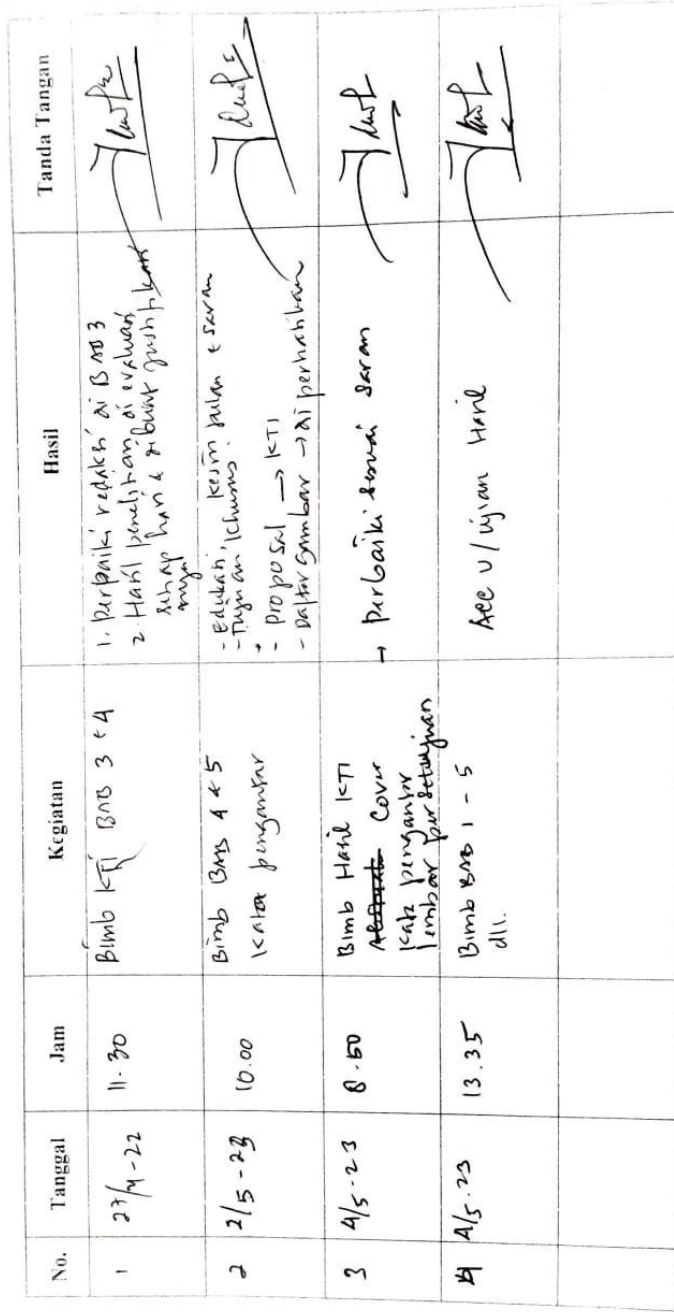 No. Tanggal Jam Kegiatan Hasil Tanda Tangan
1 27/4-22 11.30 Bimb KTI BAB 3 & 4
1. Perbaiki redaksi di BAB 3
2. Hasil penelitian di evaluasi
setiap hari & dibuat justifikasi
nya
2 2/5-23 10.00 Bimb BAB 4 & 5
Kata pengantar
- Edukasi,
- Tujuan khusus. kesimpulan & saran
- proposal → KTI
- Daftar gambar → di perhatikan
3 4/5-23 8.50 Bimb Hasil KTI
Cover
kata pengantar
lembar persetujuan
→ perbaiki sesuai saran
4 4/5.23 13.35 Bimb BAB 1 - 5
dll.
Acc u/ ujian Hasil